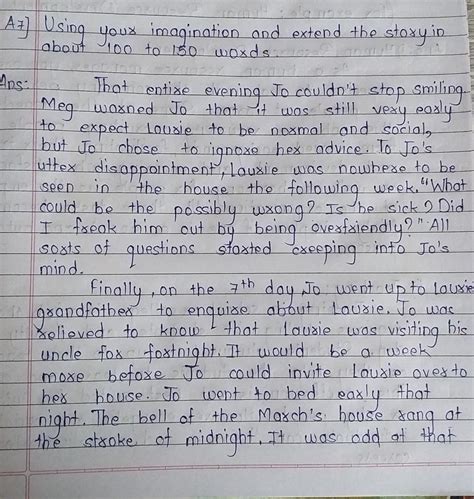 A7] Using your imagination and extend the story in
about 100 to 150 words.
Ans: That entire evening Jo couldn't stop smiling.
Meg warned Jo that it was still very early
to expect Laurie to be normal and social,
but Jo chose to ignore her advice. To Jo's
utter disappointment, Laurie was nowhere to be
seen in the house the following week. "What
could be the possibly wrong? Is he sick? Did
I freak him out by being overfriendly?" All
sorts of questions started creeping into Jo's
mind.
Finally, on the 7th day, Jo went up to Laurie
grandfather to enquire about Laurie. Jo was
relieved to know that Laurie was visiting his
uncle for fortnight. It would be a week
more before Jo could invite Laurie over to
her house. Jo went to bed early that
night. The bell of the March's house rang at
the stroke of midnight. It was odd at that